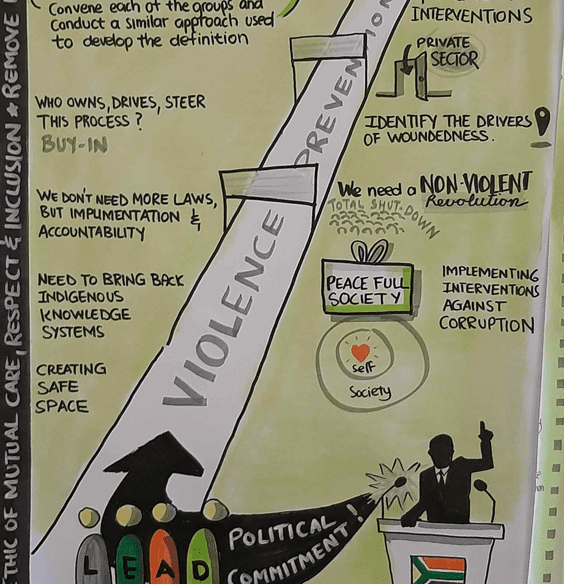 Convene each of the groups and
conduct a similar approach used
to develop the definition
INTERVENTIONS
PRIVATE
SECTOR
WHO OWNS, DRIVES, STEER
THIS PROCESS?
BUY-IN
IDENTIFY THE DRIVERS
OF WOUNDEDNESS.
WE DON'T NEED MORE LAWS,
BUT IMPLIMENTATION &
ACCOUNTABILITY
We need a NON-VIOLENT
Revolution
TOTAL SHUT-DOWN
NEED TO BRING BACK
INDIGENOUS
KNOWLEDGE
SYSTEMS
PEACE FULL
SOCIETY
IMPLEMENTING
INTERVENTIONS
AGAINST
CORRUPTION
CREATING
SAFE
SPACE
self
Society
VIOLENCE
PREVENTION
LEAD
POLITICAL
COMMITMENT!
ETHIC OF MUTUAL CARE, RESPECT & INCLUSION & REMOVE